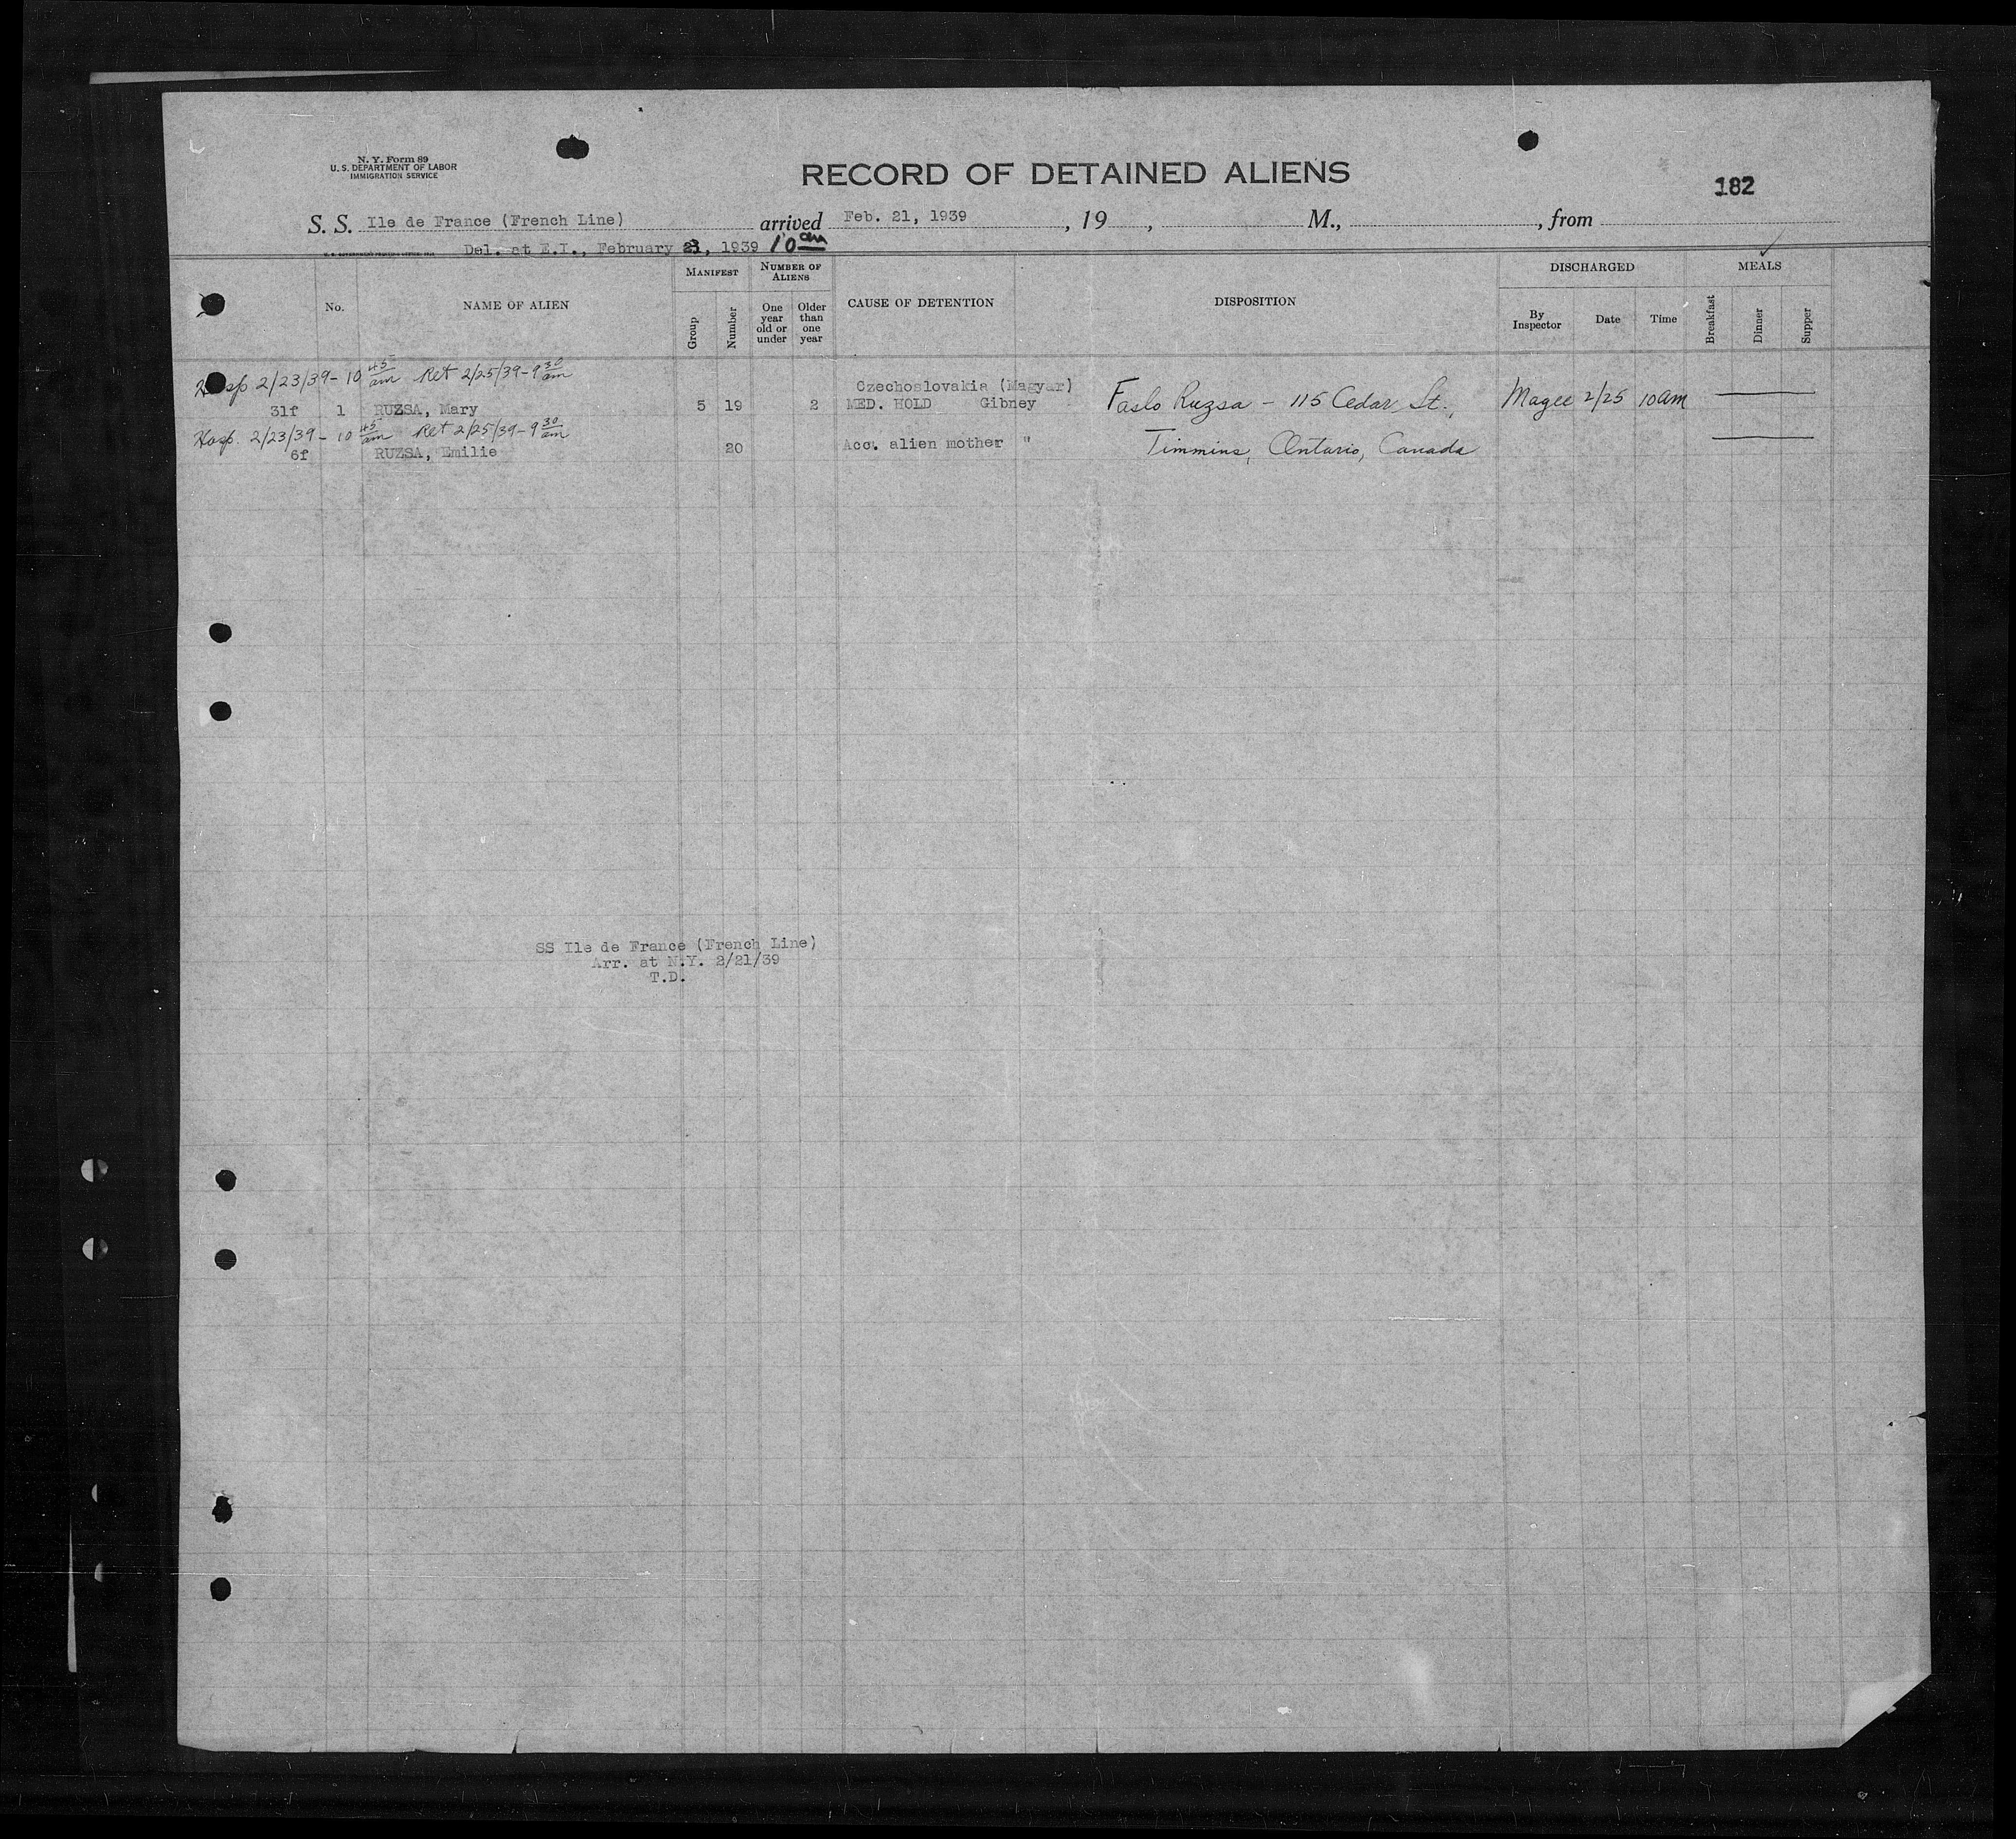 N. Y. Form 89
U. S. DEPARTMENT OF LABOR
IMMIGRATION SERVICE
RECORD OF DETAINED ALIENS
182
S. S. Ile de France (French Line) arrived Feb. 21, 1939, 19 , M., , from
Del. at E.I., February 23, 1939 10 am
No. NAME OF ALIEN MANIFEST Group Number NUMBER OF ALIENS One year old or under Older than one year CAUSE OF DETENTION DISPOSITION DISCHARGED By Inspector Date Time MEALS Breakfast Dinner Supper
Hosp 2/23/39 - 10 45 am Ret 2/25/39 - 9 30 am
Czechoslovakia (Magyar)
31f 1 RUZSA, Mary 5 19 2 MED. HOLD Gibney Faslo Ruzsa - 115 Cedar St., Magee 2/25 10 am
Hosp. 2/23/39 - 10 45 am Ret 2/25/39 - 9 30 am
6f RUZSA, Emilie 20 Acc. alien mother " Timmins, Ontario, Canada
SS Ile de France (French Line)
Arr. at N.Y. 2/21/39
T.D.